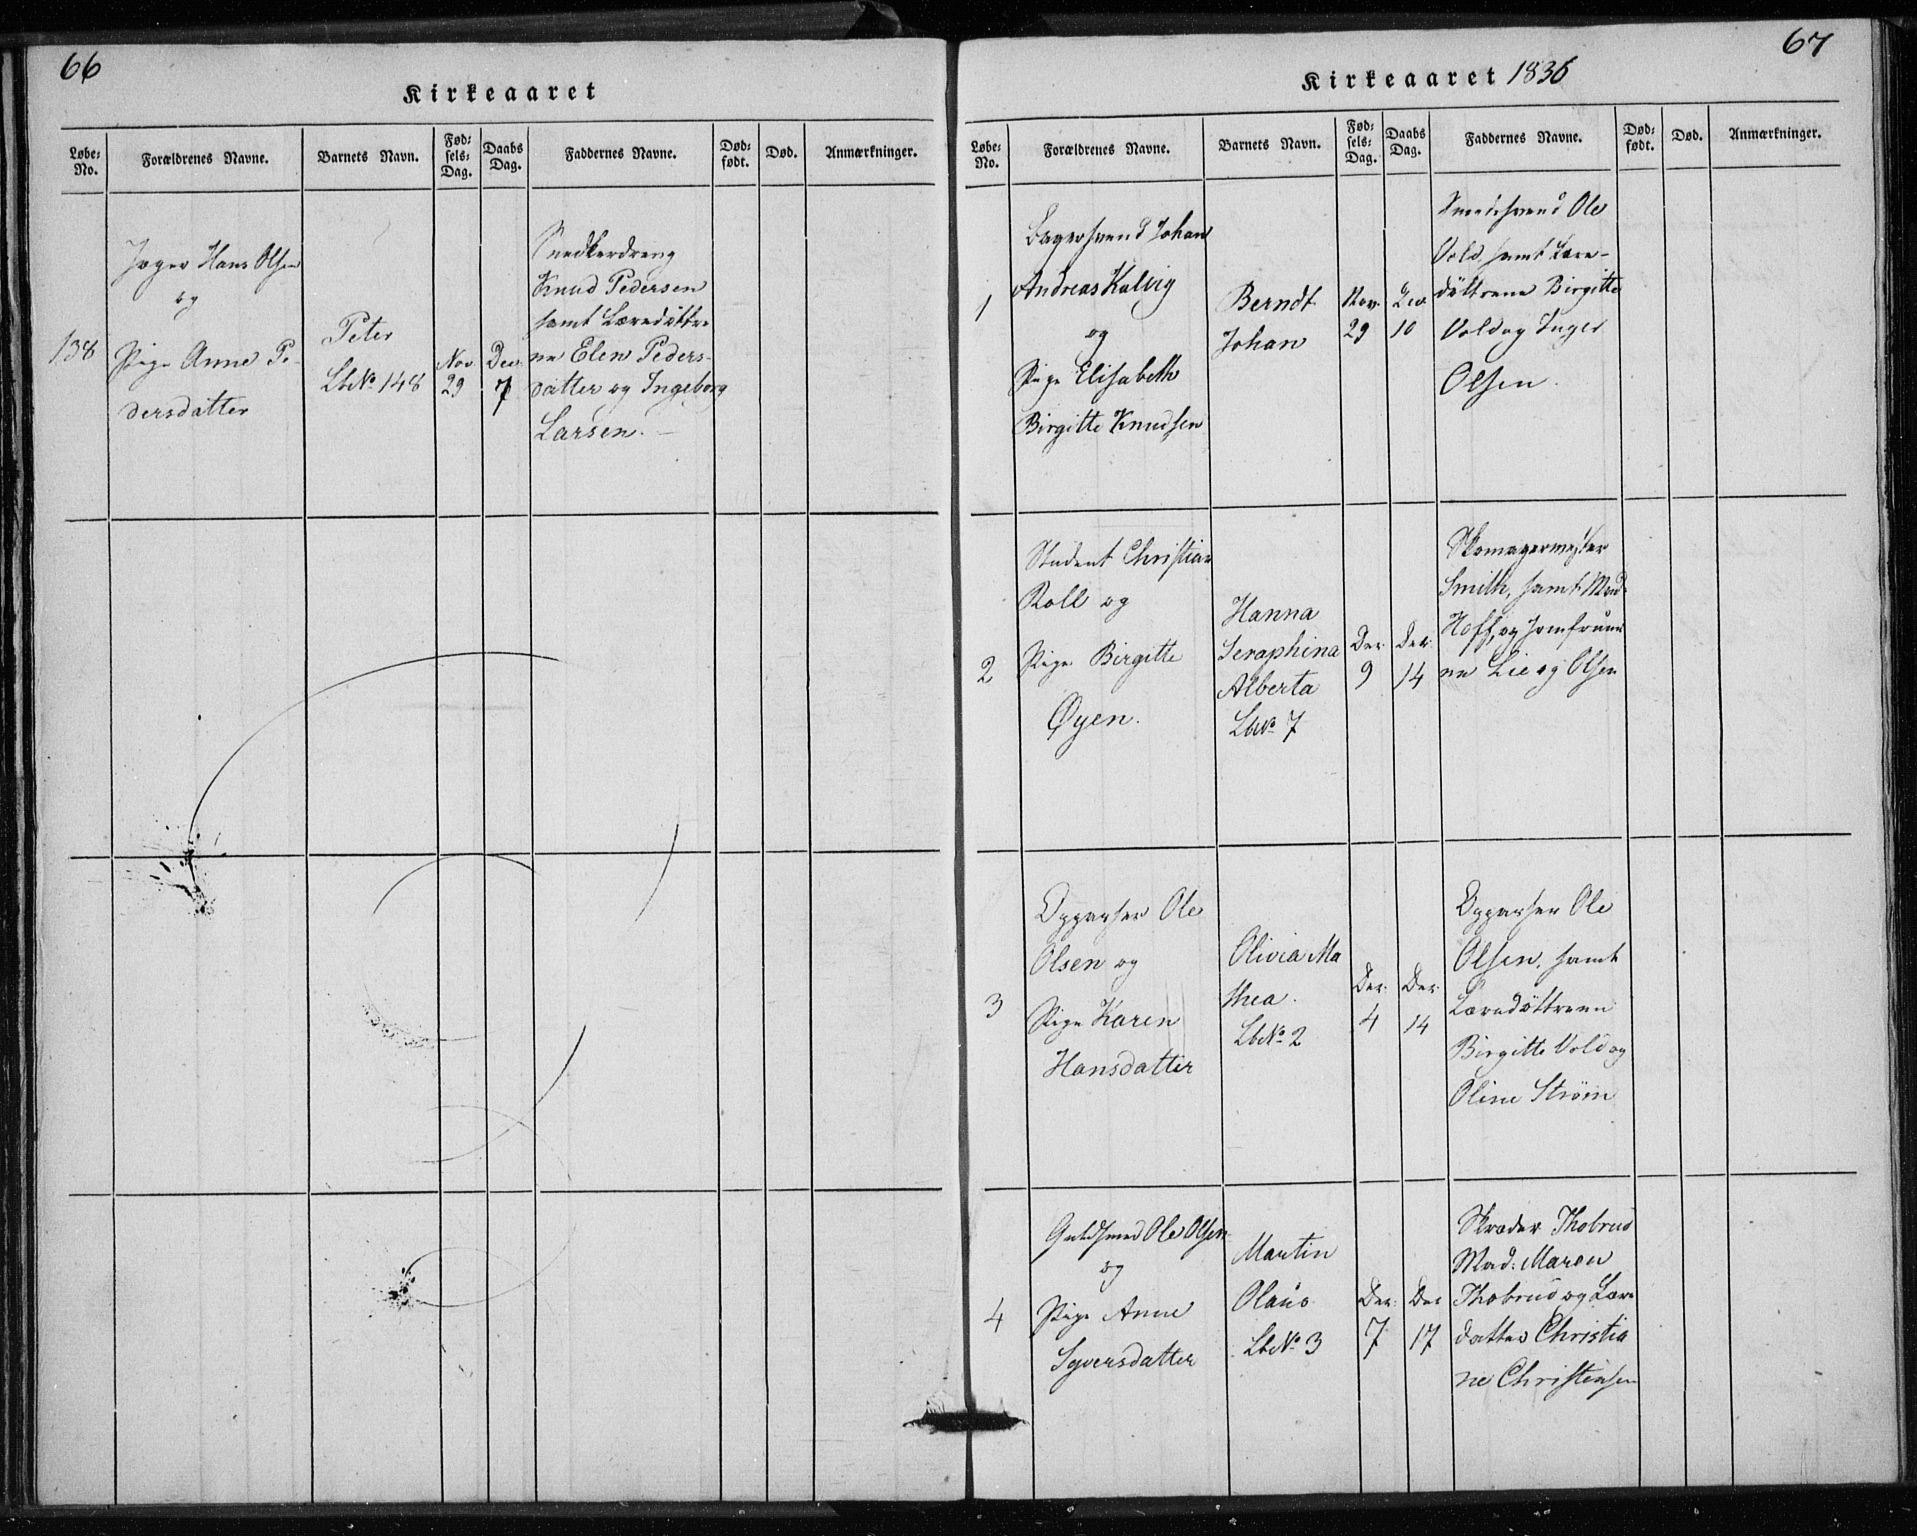 66
Kirkeaaret
Løbe-No.
Forældrenes Navne.
Barnets Navn.
Fød-sels-Dag.
Daabs Dag.
Faddernes Navne.
Død-født.
Død.
Anmærkninger.
138
Jæger Hans Olsen
og
Pige Anne Pe-
dersdatter
Peter
Lb№ 148
Nov.
29
Dec.
7
Snedkerdreng
Knud Pedersen
samt Læredøttre
ne Elen Peders-
datter og Ingeborg
Larsen. —
67
Kirkeaaret 1836
Løbe-No.
Forældrenes Navne.
Barnets Navn.
Fød-sels-Dag.
Daabs Dag.
Faddernes Navne.
Død-født.
Død.
Anmærkninger.
1
Bagersvend Johan
Andreas Kalvig
og
Pige Elisabeth
Birgitte Knudsen
Berndt
Johan
Nov.
29
Dec.
10
Smedesvend Ole
Vold, samt Lære-
døttrene Birgitte
Vold og Inger
Olsen.
2
Student Christian
Roll og
Pige Birgitte
Øyen.
Hanna
Seraphina
Alberta
Lb№ 7
Dec.
9
Dec.
14
Skomagermester
Smith, samt Mad.
Hoff, og Jomfrue
ne Lie og Olsen
3
Oppasser Ole
Olsen og
Pige Karen
Hansdatter
Olivia Ma
thea.
Lb№ 2
Dec.
4
Dec.
14
Oppasser Ole
Olsen, samt
Læredøttrene
Birgitte Vold og
Oline Strøm
4
Guldsmed Ole Olsen
og
Pige Anne
Syversdatter
Martin
Olaus
Lb№ 3
Dec.
7
Dec
17
Skræder Thobrud
Mad. Maren
Thobrud og Lære
datter Christia
ne Christensen